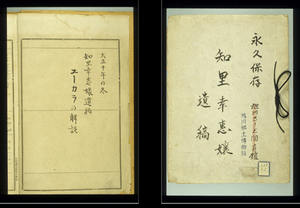 永久保存
知里幸惠嬢
遺稿
旭川郷土博物館
大正十年の冬
知里幸惠嬢遺稿
ユーカラの解説